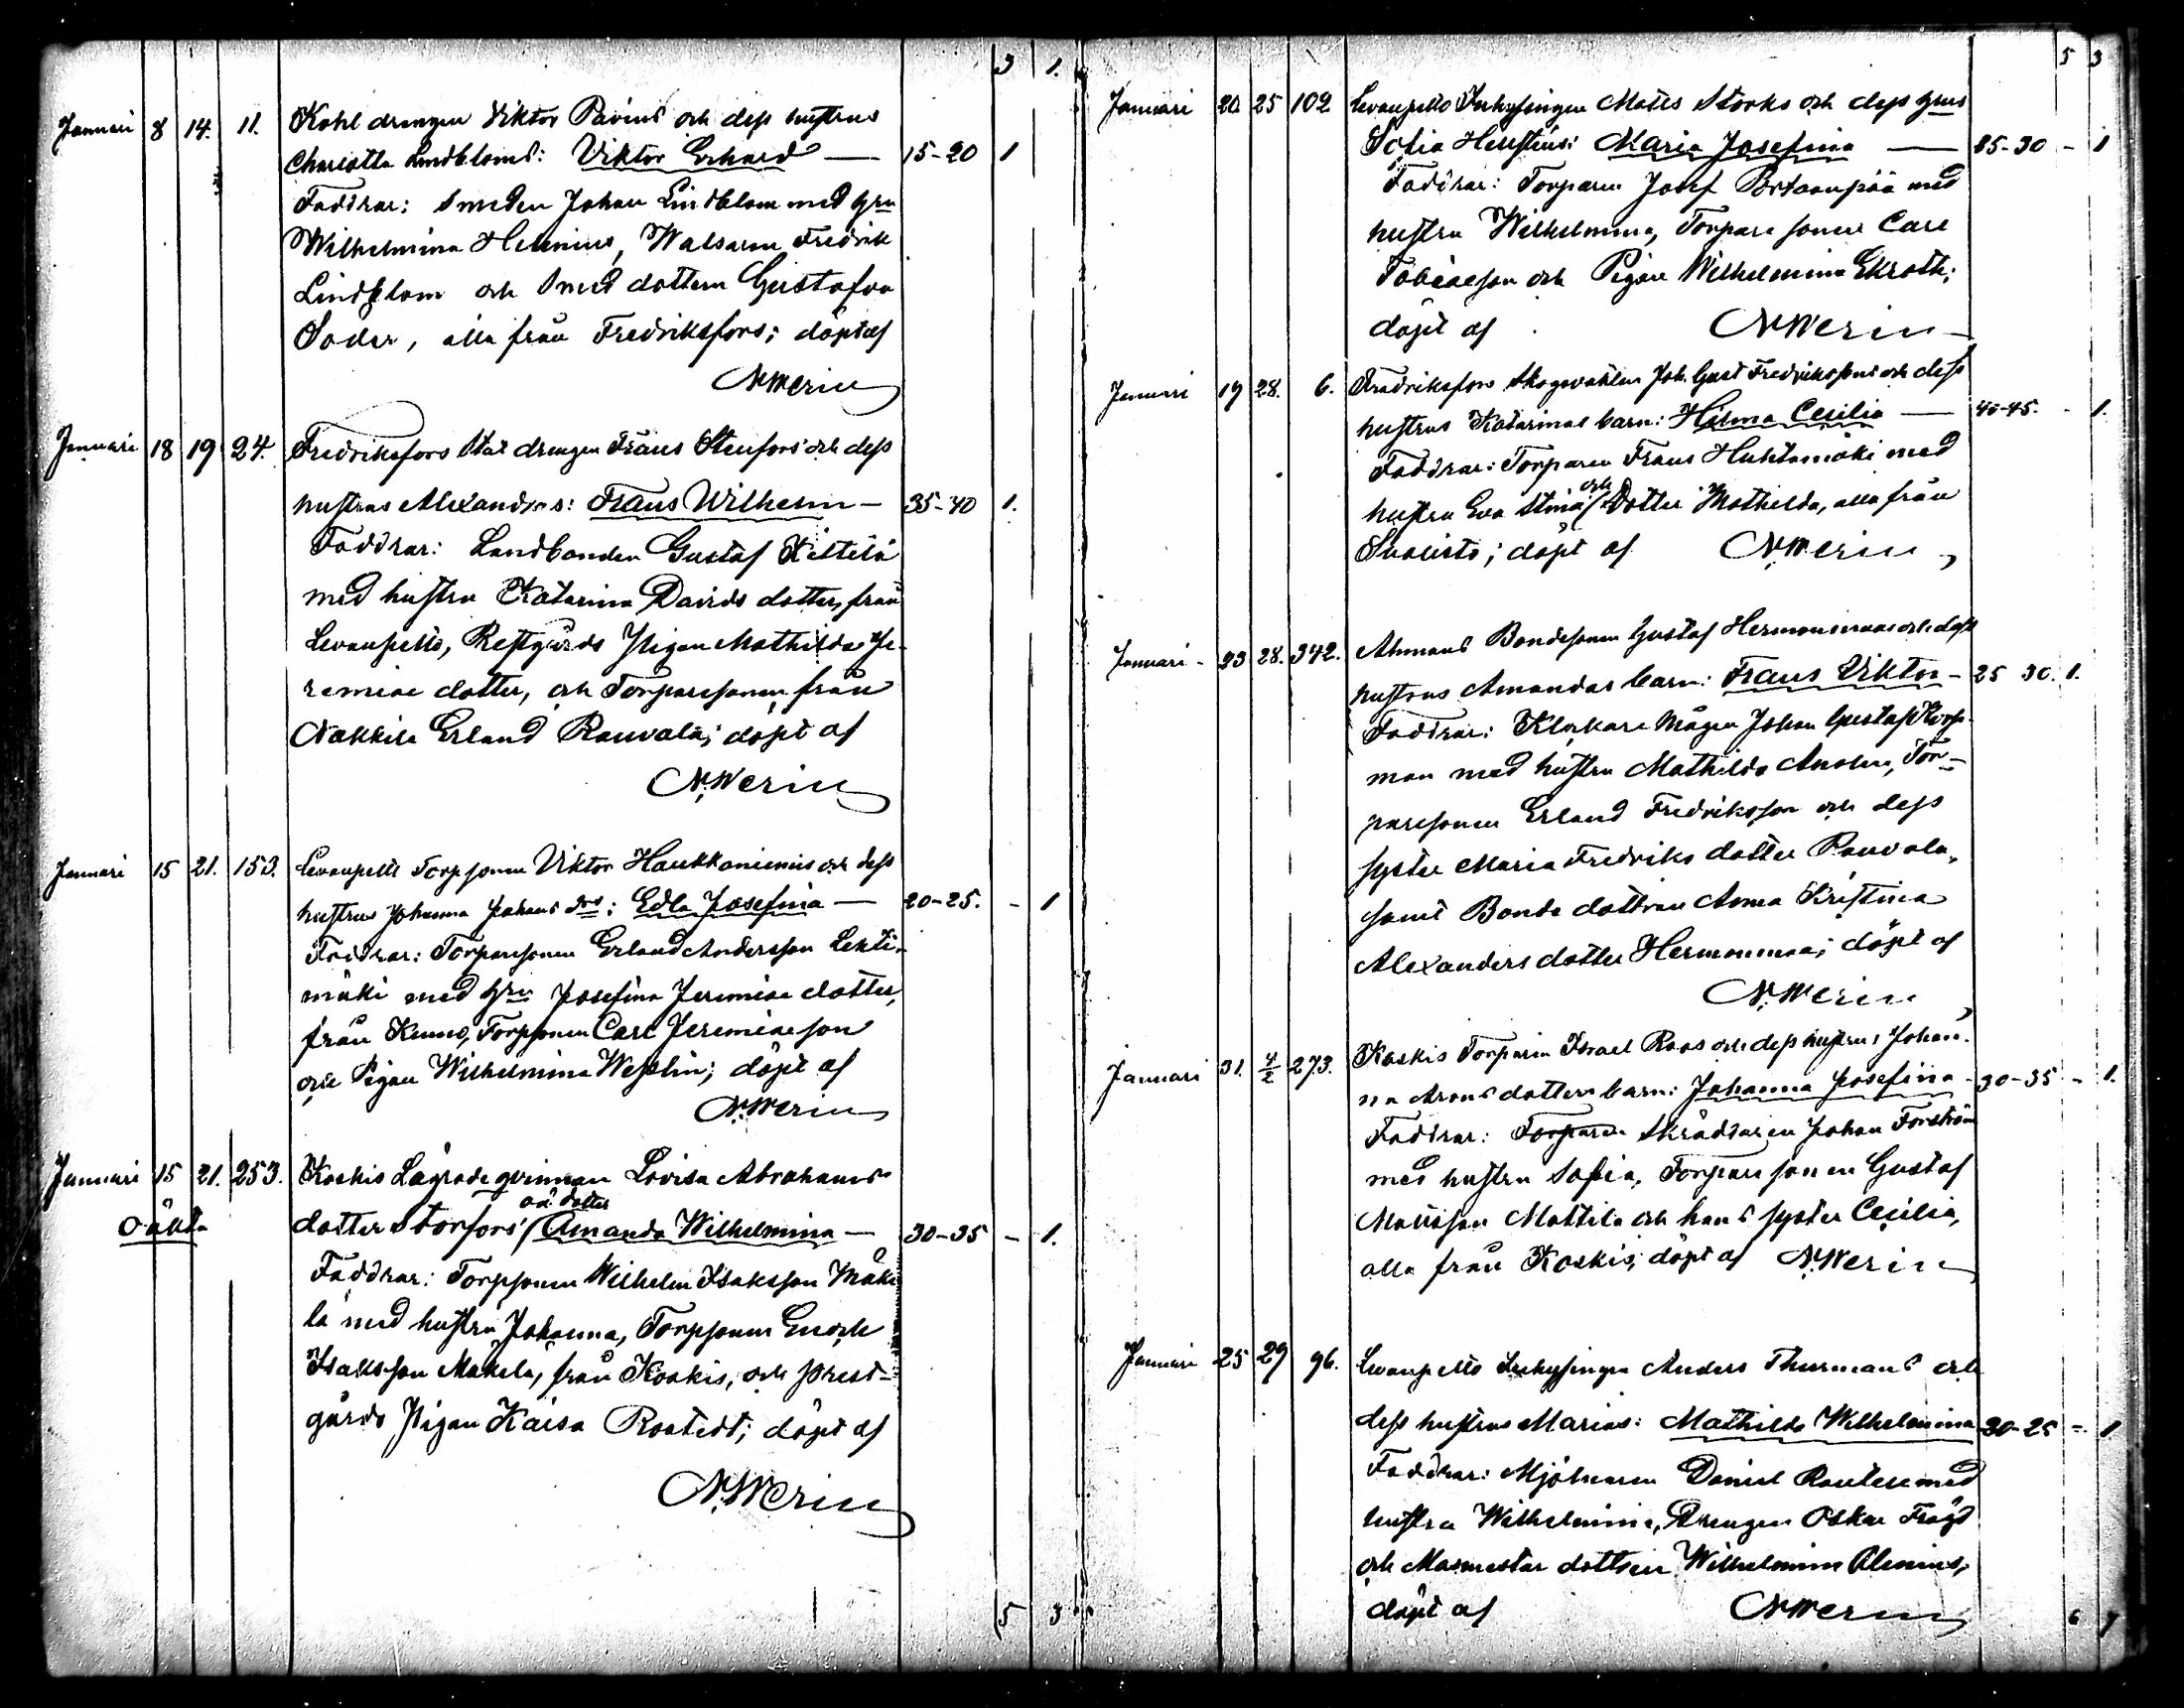 3 1.
Januari 8 14. 11. Kohl drengen Viktor Pavins och dess hustrus
Charlotta Lindbloms: Viktor Erhard — 15-20 1
Faddrar: Smeden Johan Lindblom med hru
Wilhelmina Helenius, Walsaren Fredrik
Lindblom och Smed dottern Gustafva
Söder, alla från Fredriksfors; döpt af
N. Merin
Januari 18 19 24. Fredriksfors Stal drengen Frans Stenfors' och dess
hustrus Alexandras: Frans Wilhelm — 35-40 1.
Faddrar: Landbonden Gustaf Kittilä
med hustru Katarina Davids dotter, från
Levanpelto, Pigan Mathilda Je-
remiae dotter, och Torparesonen från
Nakkila Erland Rauvala; döpt af
N. Merin
Januari 15 21. 153. Levanpelto Torpsonen Viktor Haukkaniemis och dess
hustrus Johanna Johans drs: Edla Josefina — 20-25. - 1
Faddrar: Torparesonen Erland Andersson Lehti-
mäki med hru Josefina Jeremiae dotter,
från Torpsonen Carl Jeremiaeson
och Pigan Wilhelmina Wesslin; döpt af
N. Merin
Januari 15 21. 253. Koskis Lägrade qvinnan Lovisa Abrahams
Oäkta dotter Storfors' oä dotter Amanda Wilhelmina — 30-35 - 1.
Faddrar: Torpsonen Wilhelm Isaksson Mäke
lä med hustru Johanna, Torpsonen Enoch
Isaksson Mäkelä, från Koskis, och prest-
gårds Pigan Kaisa Rostedt; döpt af
N. Merin
5 3
5 3
Januari 20 25 102 Levanpelto Inhysingen Matts Storks och dess hrus
Sofia Maria Josefina — 25-30 - 1
Faddrar: Torparen Josef Portaanpää med
hustru Wilhelmina, Torpare sonen Carl
Tobiaeson och Pigan Wilhelmina Ekroth;
döpt af N. Merin
Januari 19 28. 6. Fredriksfors Skogvakten Joh. Gust Fredrikssons och dess
hustrus Katarinas barn: Hilma Cecilia — 40-45. - 1.
Faddrar: Torparen Frans Huhtamäki med
hustru Eva Stina och Dotter Mathilda, alla från
döpt af N. Merin
Januari - 23 28. 342. Ahmaus Bondesonen Gustaf Hermonmaas och dess
hustrus Amandas barn: Frans Viktor - 25 30. 1.
Faddrar: Klockare Mågen Johan Gustaf
man med hustru Mathilda Tor-
paresonen Erland Fredriksson och dess
syster Maria Fredriks dotter Rauvala,
samt Bonde dottren Anna Kristina
Alexanders dotter Hermonmaa; döpt af
N. Merin
Januari 31. 4/2 273. Koskis Torparen Israel Roos och dess hustrus Johan-
na Arons dotters barn: Johanna Josefina - 30-35 - 1.
Faddrar: Torparen Skräddaren Johan Forström
med hustru Sofia, Torpare sonen Gustaf
Mattsson Mattila och hans syster Cecilia,
alla från Koskis; döpt af N. Merin
Januari 25 29 96. Levanpelto Inhysingen Anders Thurmans och
dess hustrus Marias: Mathilda Wilhelmina 20-25 - 1
Faddrar: Mjölnaren Daniel med
hustru Wilhelmina, Drengen Oskar
och Masmestar dottren Wilhelmina Alenius,
döpt af N. Merin
6 7